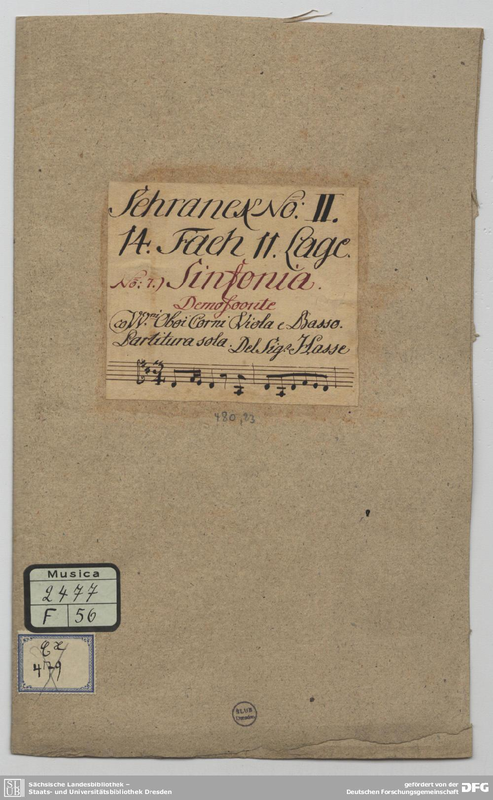 Schranck No: II.
14. Fach 11. Lage.
No: 7.) Sinfonia.
Demofoonte
co VV.ni Oboi Corni Viola e Basso.
Partitura sola. Del Sig.r Hasse
480,23
Musica
2477
F 56
479
SLUB
Sächsische Landesbibliothek –
Staats- und Universitätsbibliothek Dresden
gefördert von der
Deutschen Forschungsgemeinschaft DFG